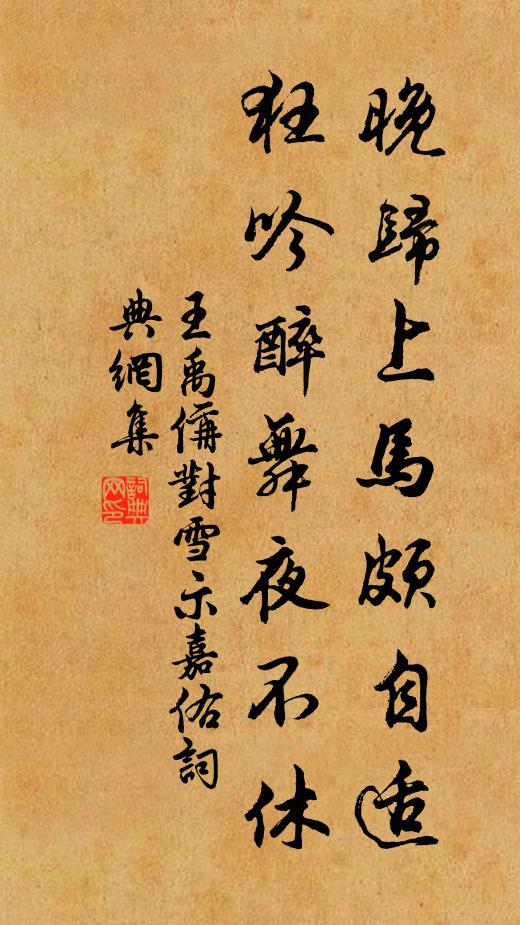 晚歸上馬頗自适
狂吟醉舞夜不休
王禹偁對雪示嘉佑詞
典網集
詞典
网印